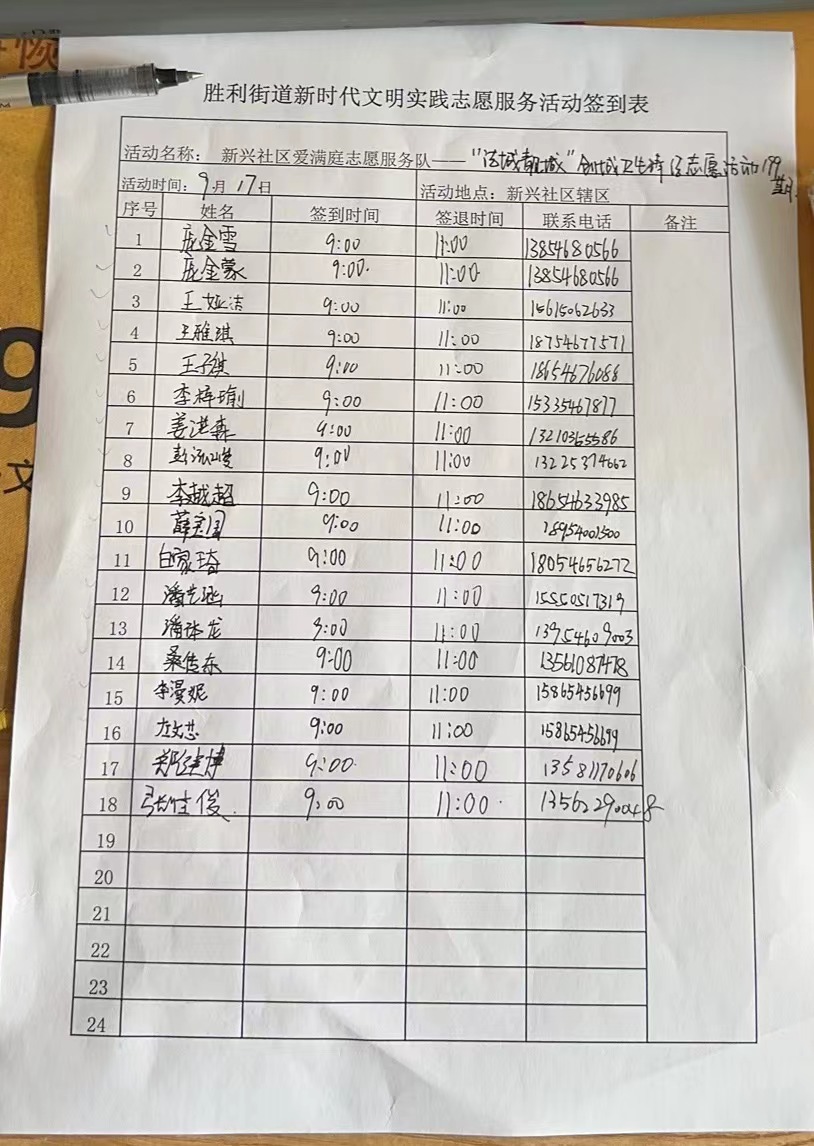 胜利街道新时代文明实践志愿服务活动签到表
活动名称： 新兴社区爱满庭志愿服务队——“ 城靓城”创城卫生 志愿活动179
活动时间：9月17日 活动地点：新兴社区辖区
序号 姓名 签到时间 签退时间 联系电话 备注
1 庞金雪 9:00 11:00 13854680566
2 庞金蒙 9:00 11:00 13854680566
3 王娅洁 9:00 11:00 15615062633
4 王雅琪 9:00 11:00 18754677571
5 王子淇 9:00 11:00 18654676088
6 李梓瑜 9:00 11:00 15335467877
7 姜洪森 9:00 11:00
8 彭泓 9:00 11:00 13225374662
9 李越超 9:00 11:00 18654633985
10 薛 国 9:00 11:00 18954001500
11 白家琦 9:00 11:00 18054656272
12 潘艺涵 9:00 11:00 15550517319
13 潘 龙 9:00 11:00 13954609003
14 桑传东 9:00 11:00 13561087478
15 李漫妮 9:00 11:00 15865456699
16 左 9:00 11:00 15865456699
17 郑建博 9:00 11:00 13581170606
18 张佳俊 9:00 11:00 13562290048
19
20
21
22
23
24